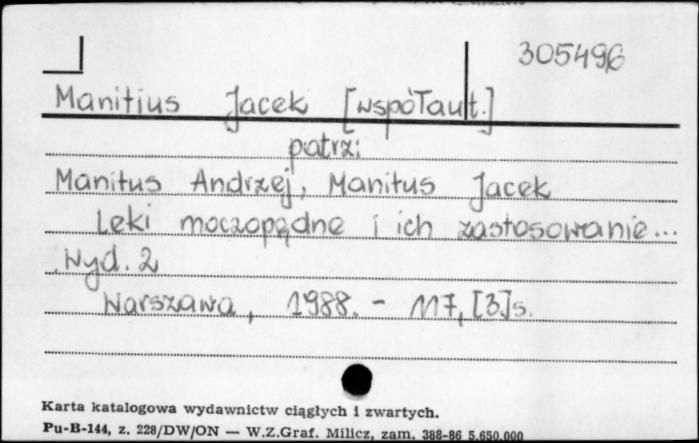 305496
Manitius Jacek [współaut.]
patrz:
Manitus Andrzej, Manitus Jacek
Leki moczopędne i ich zastosowanie...
Wyd. 2
Warszawa, 1988. - 117, [3]s.
Karta katalogowa wydawnictw ciągłych i zwartych.
Pu-B-144, z. 228/DW/ON — W.Z.Graf. Milicz, zam. 388-86 5.650.000